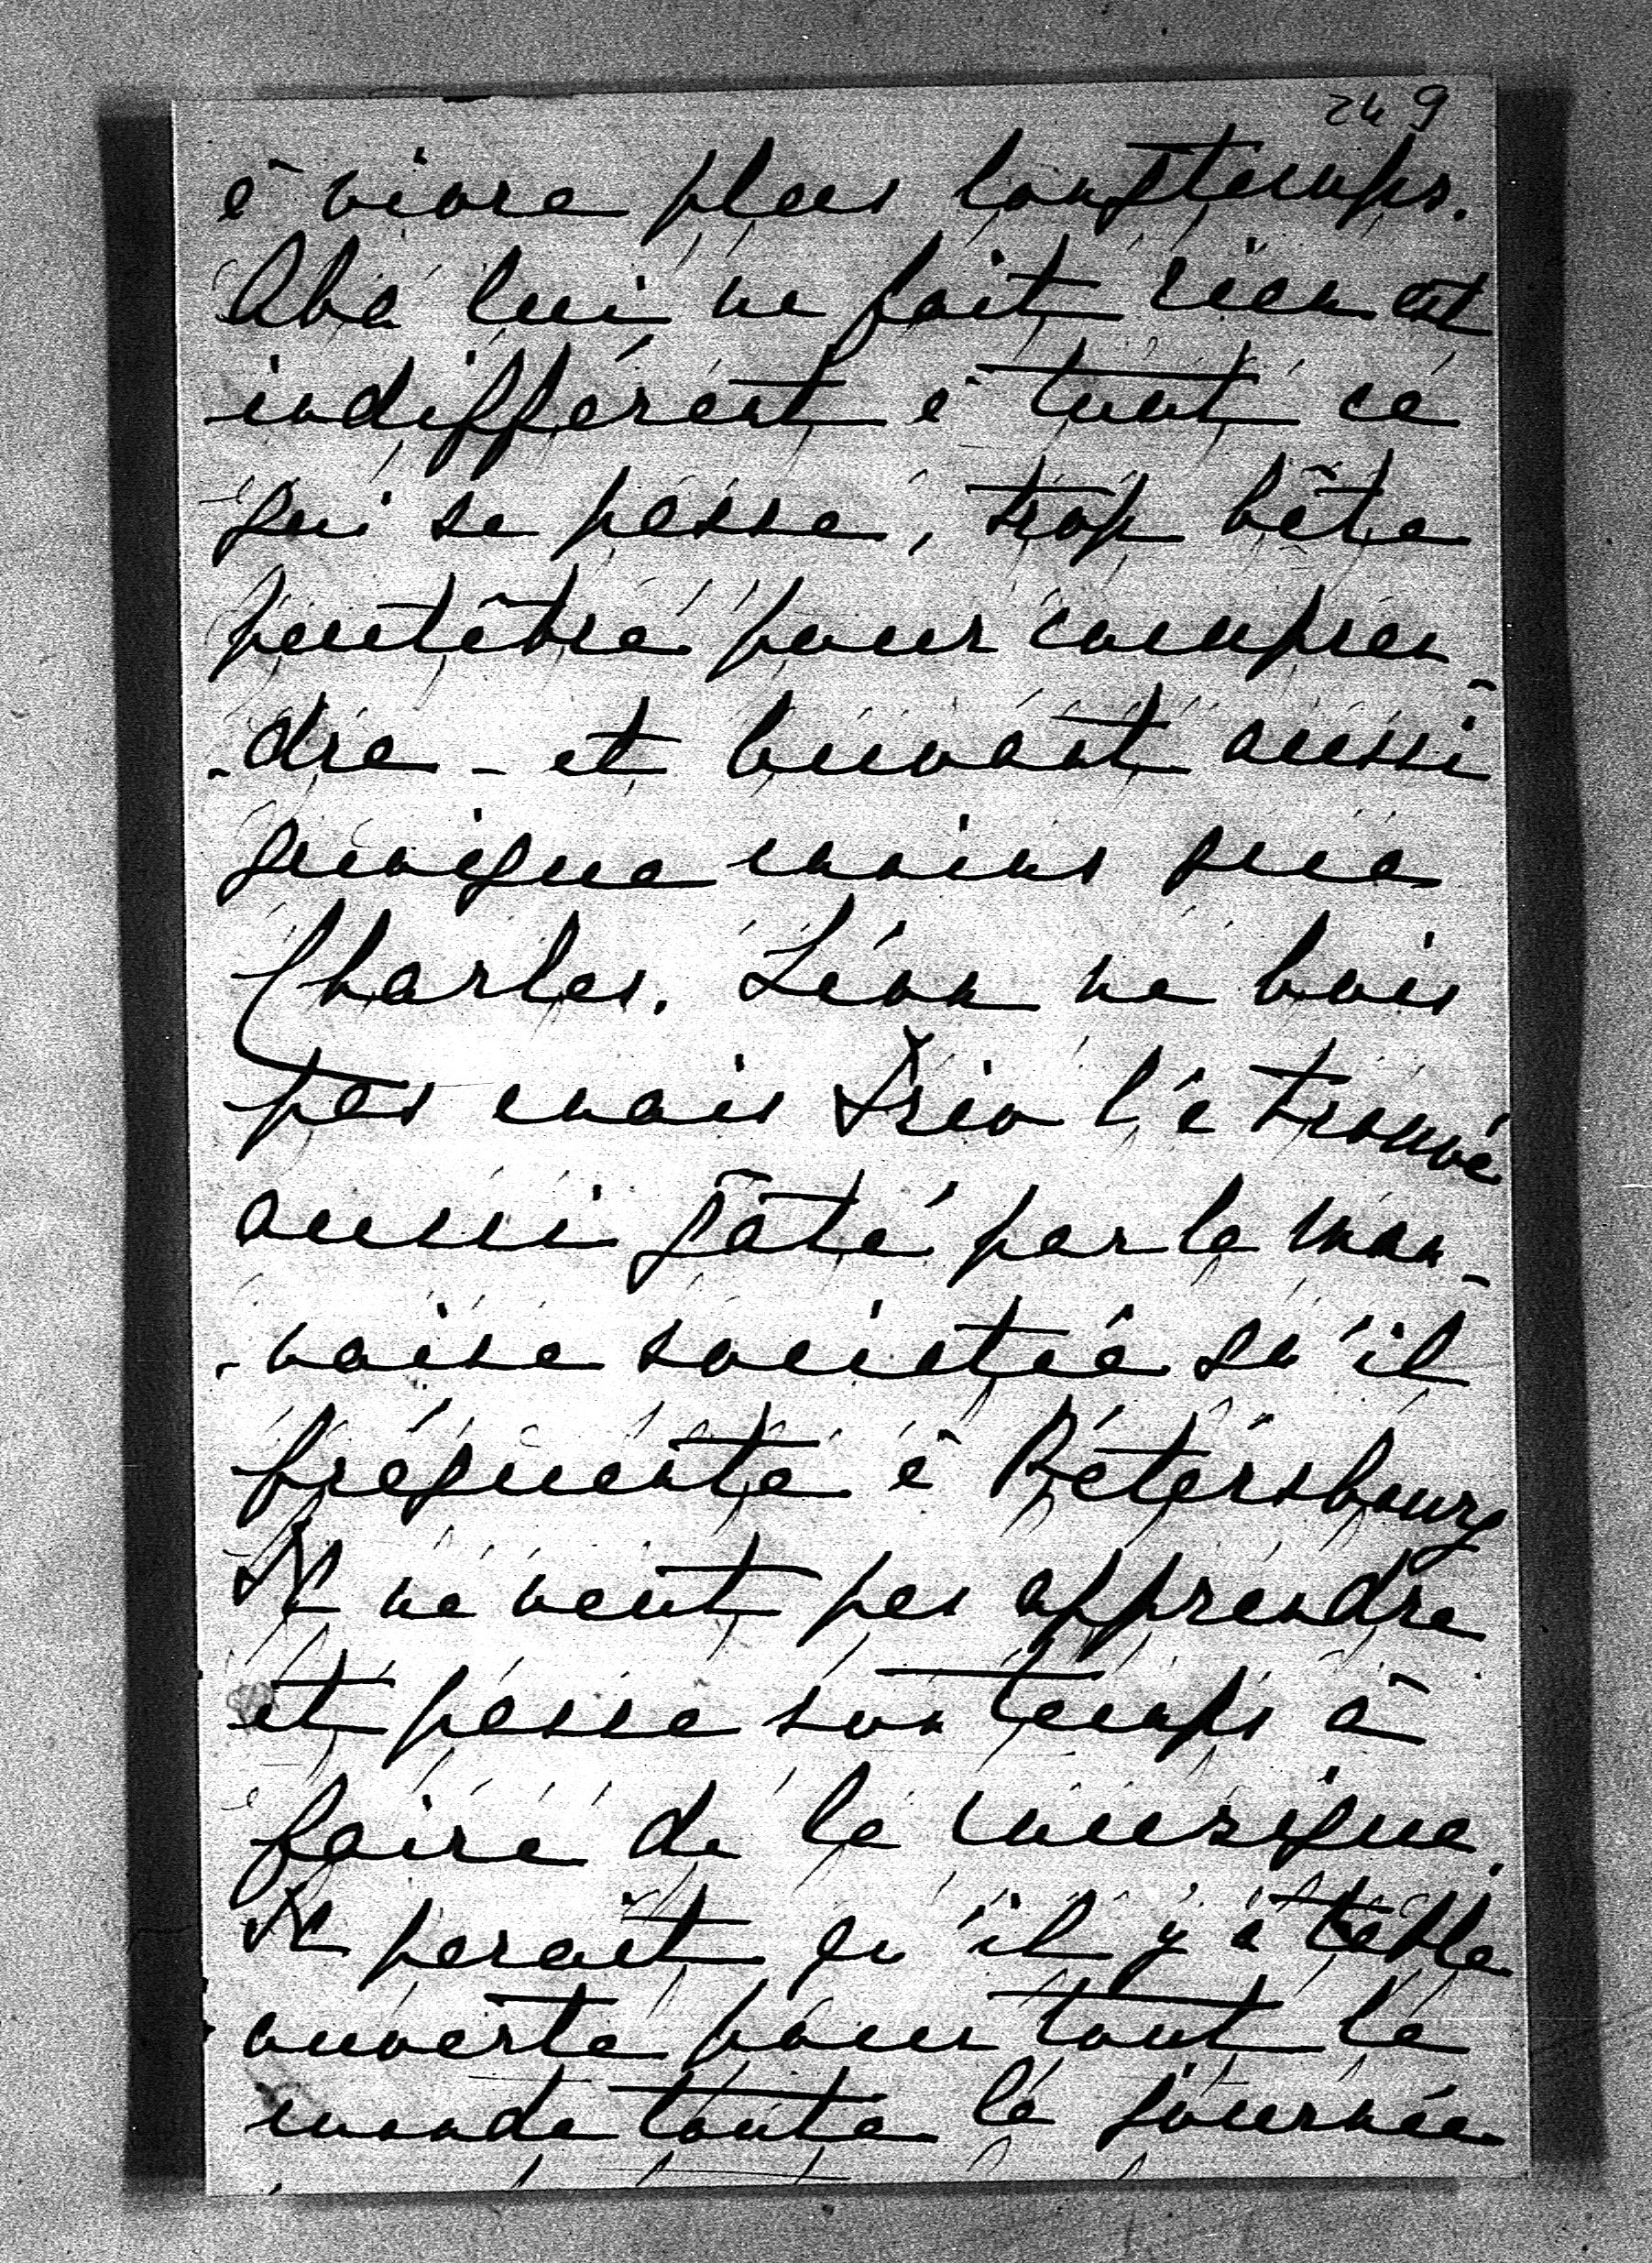 249
à vivre plus longtemps.
Aba lui ne fait rien est
indifférent à tout ce
qui se passe, trop bête
peutêtre pour compren-
-dre - et buvant aussi
quoique moins que
Charles. Léon ne bois
pas mais l'a trouvé
aussi gâté par la mau-
-vaise societée qu'il
fréquente à Pétersbourg
Il ne veut pas apprendre
et passe son temps à
faire de la musique.
Il parait qu'il y a table
ouverte pour tout le
monde toute la journée